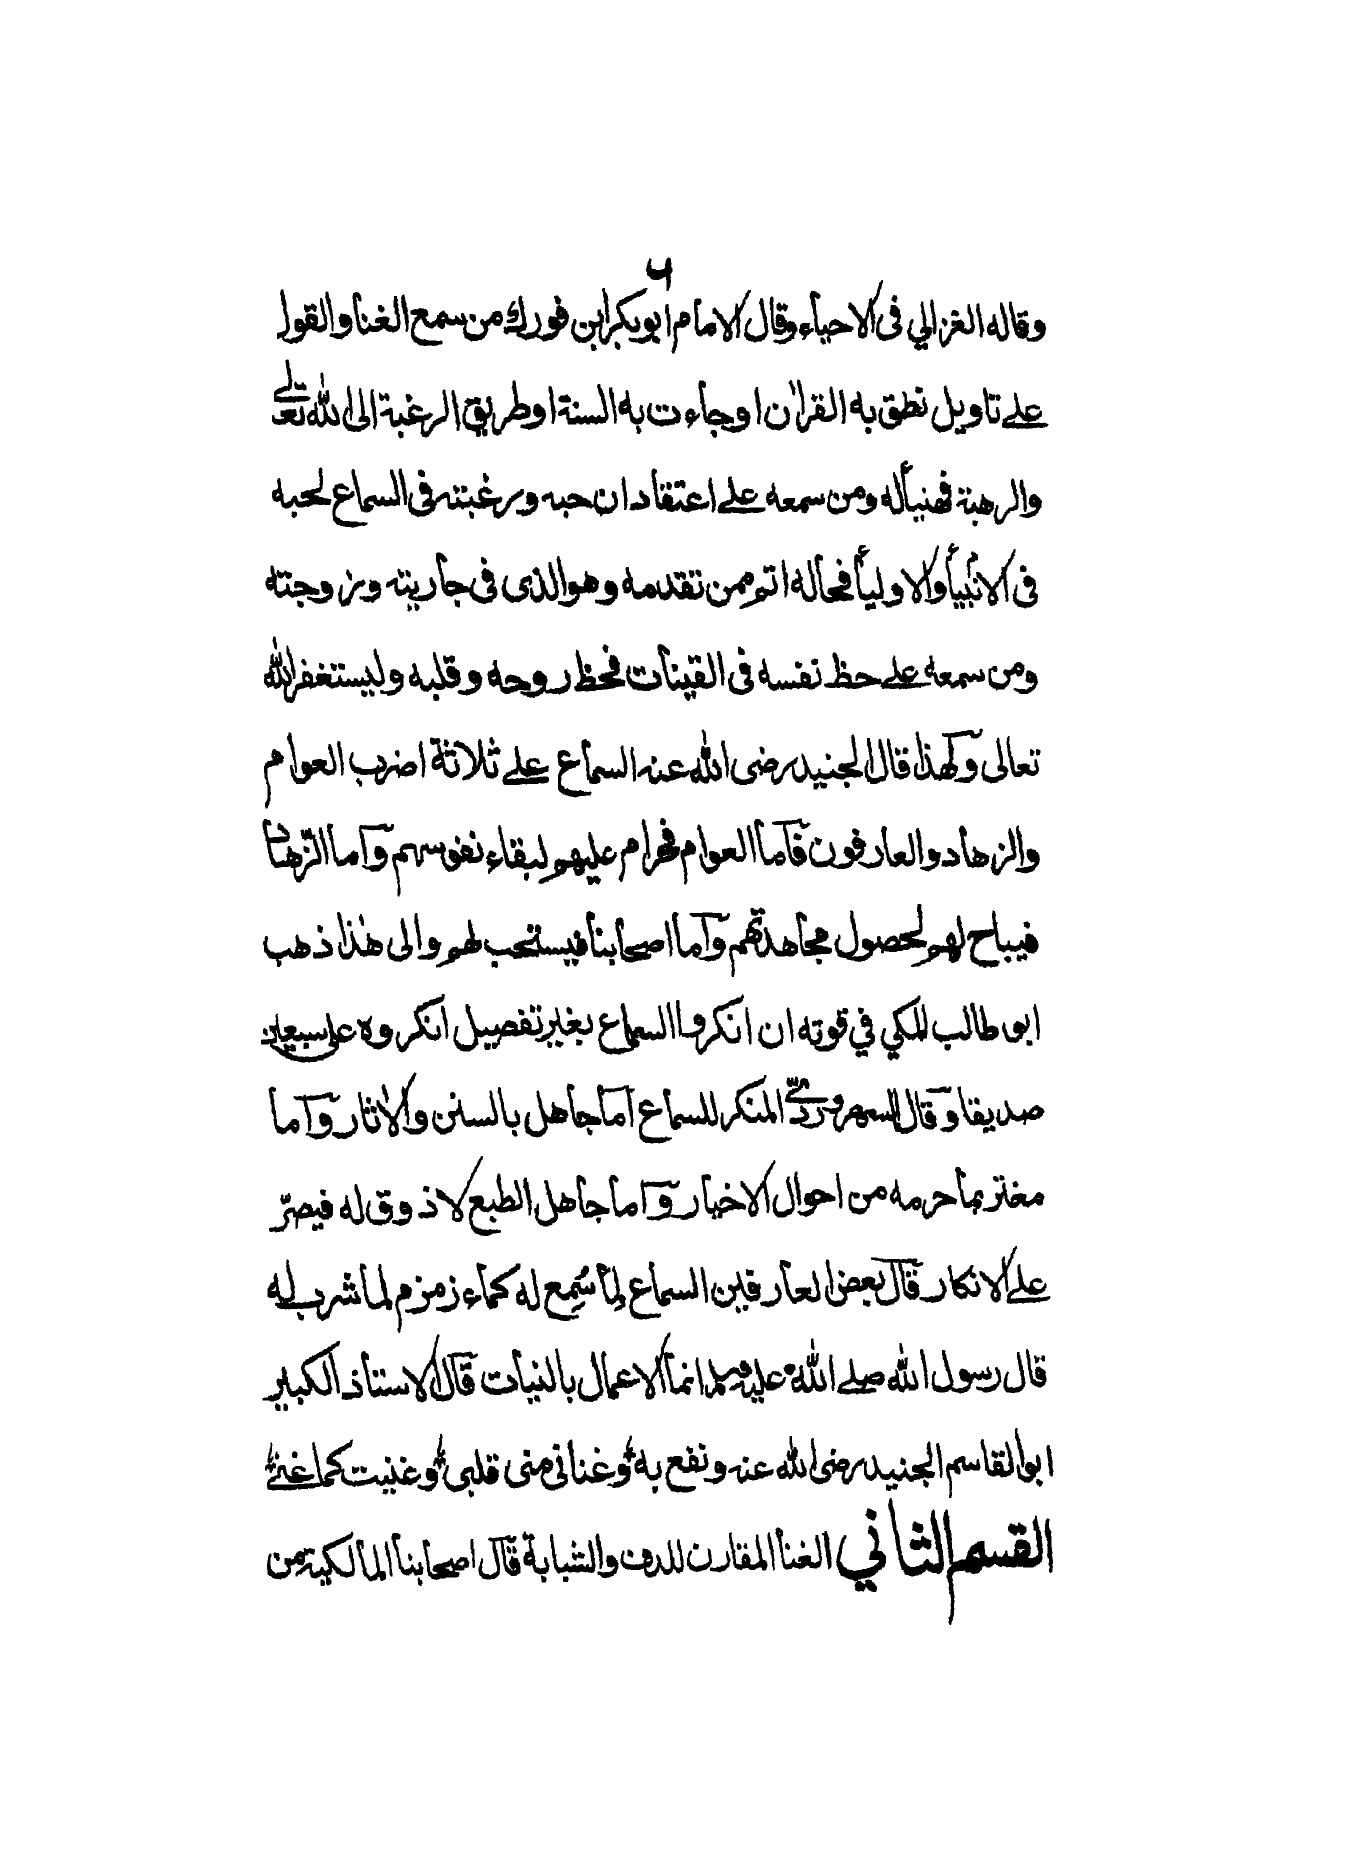 ٦
وقاله الغزالي فى الاحياء وقال الامام ابو بكر ابن فورك من سمع الغنا والقول
على تاويل نطق به القرأن او جاءت به السنة او طريق الرغبة الى الله تعالى
والرهبة فهنيأ له ومن سمعه على اعتقاد ان حبه ورغبته فى السماع لحبه
فى الانبيأ والاوليأ فحاله اتم ممن تقدمه وهو الذى فى جاريته وزوجته
ومن سمعه على حظ نفسه فى القينات فحظ روحه وقلبه وليستغفر الله
تعالى وكهذا قال الجنيد رضى الله عنه السماع على ثلاثة اضرب العوام
والزهاد والعارفون فاما العوام فحرام عليهم لبقاء نفوسهم واما الزهاد
فيباح لهم لحصول مجاهدتهم واما اصحابنا فيستحب لهم والى هذا ذهب
ابو طالب المكي في قوته ان انكروا السماع بغير تفصيل انكروه على سبعين
صديقا وقال السهروردى المنكر للسماع اما جاهل بالسنن والأثار واما
مغتر بما حرمه من احوال الاخيار واما جاهل الطبع لا ذوق له فيصرّ
على الانكار قال بعض العارفين السماع لِمأ سُمِع له كماء زمزم لما شرب له
قال رسول الله صلى الله عليه وسلم انما الاعمال بالنيات قال الاستاذ الكبير
ابو القاسم الجنيد رضى الله عنه ونفع به وغنانى منى قلبى وغنيت كما غنى
القسم الثاني الغنا المقارن للدف والشبابة قال اصحابنا المالكية من